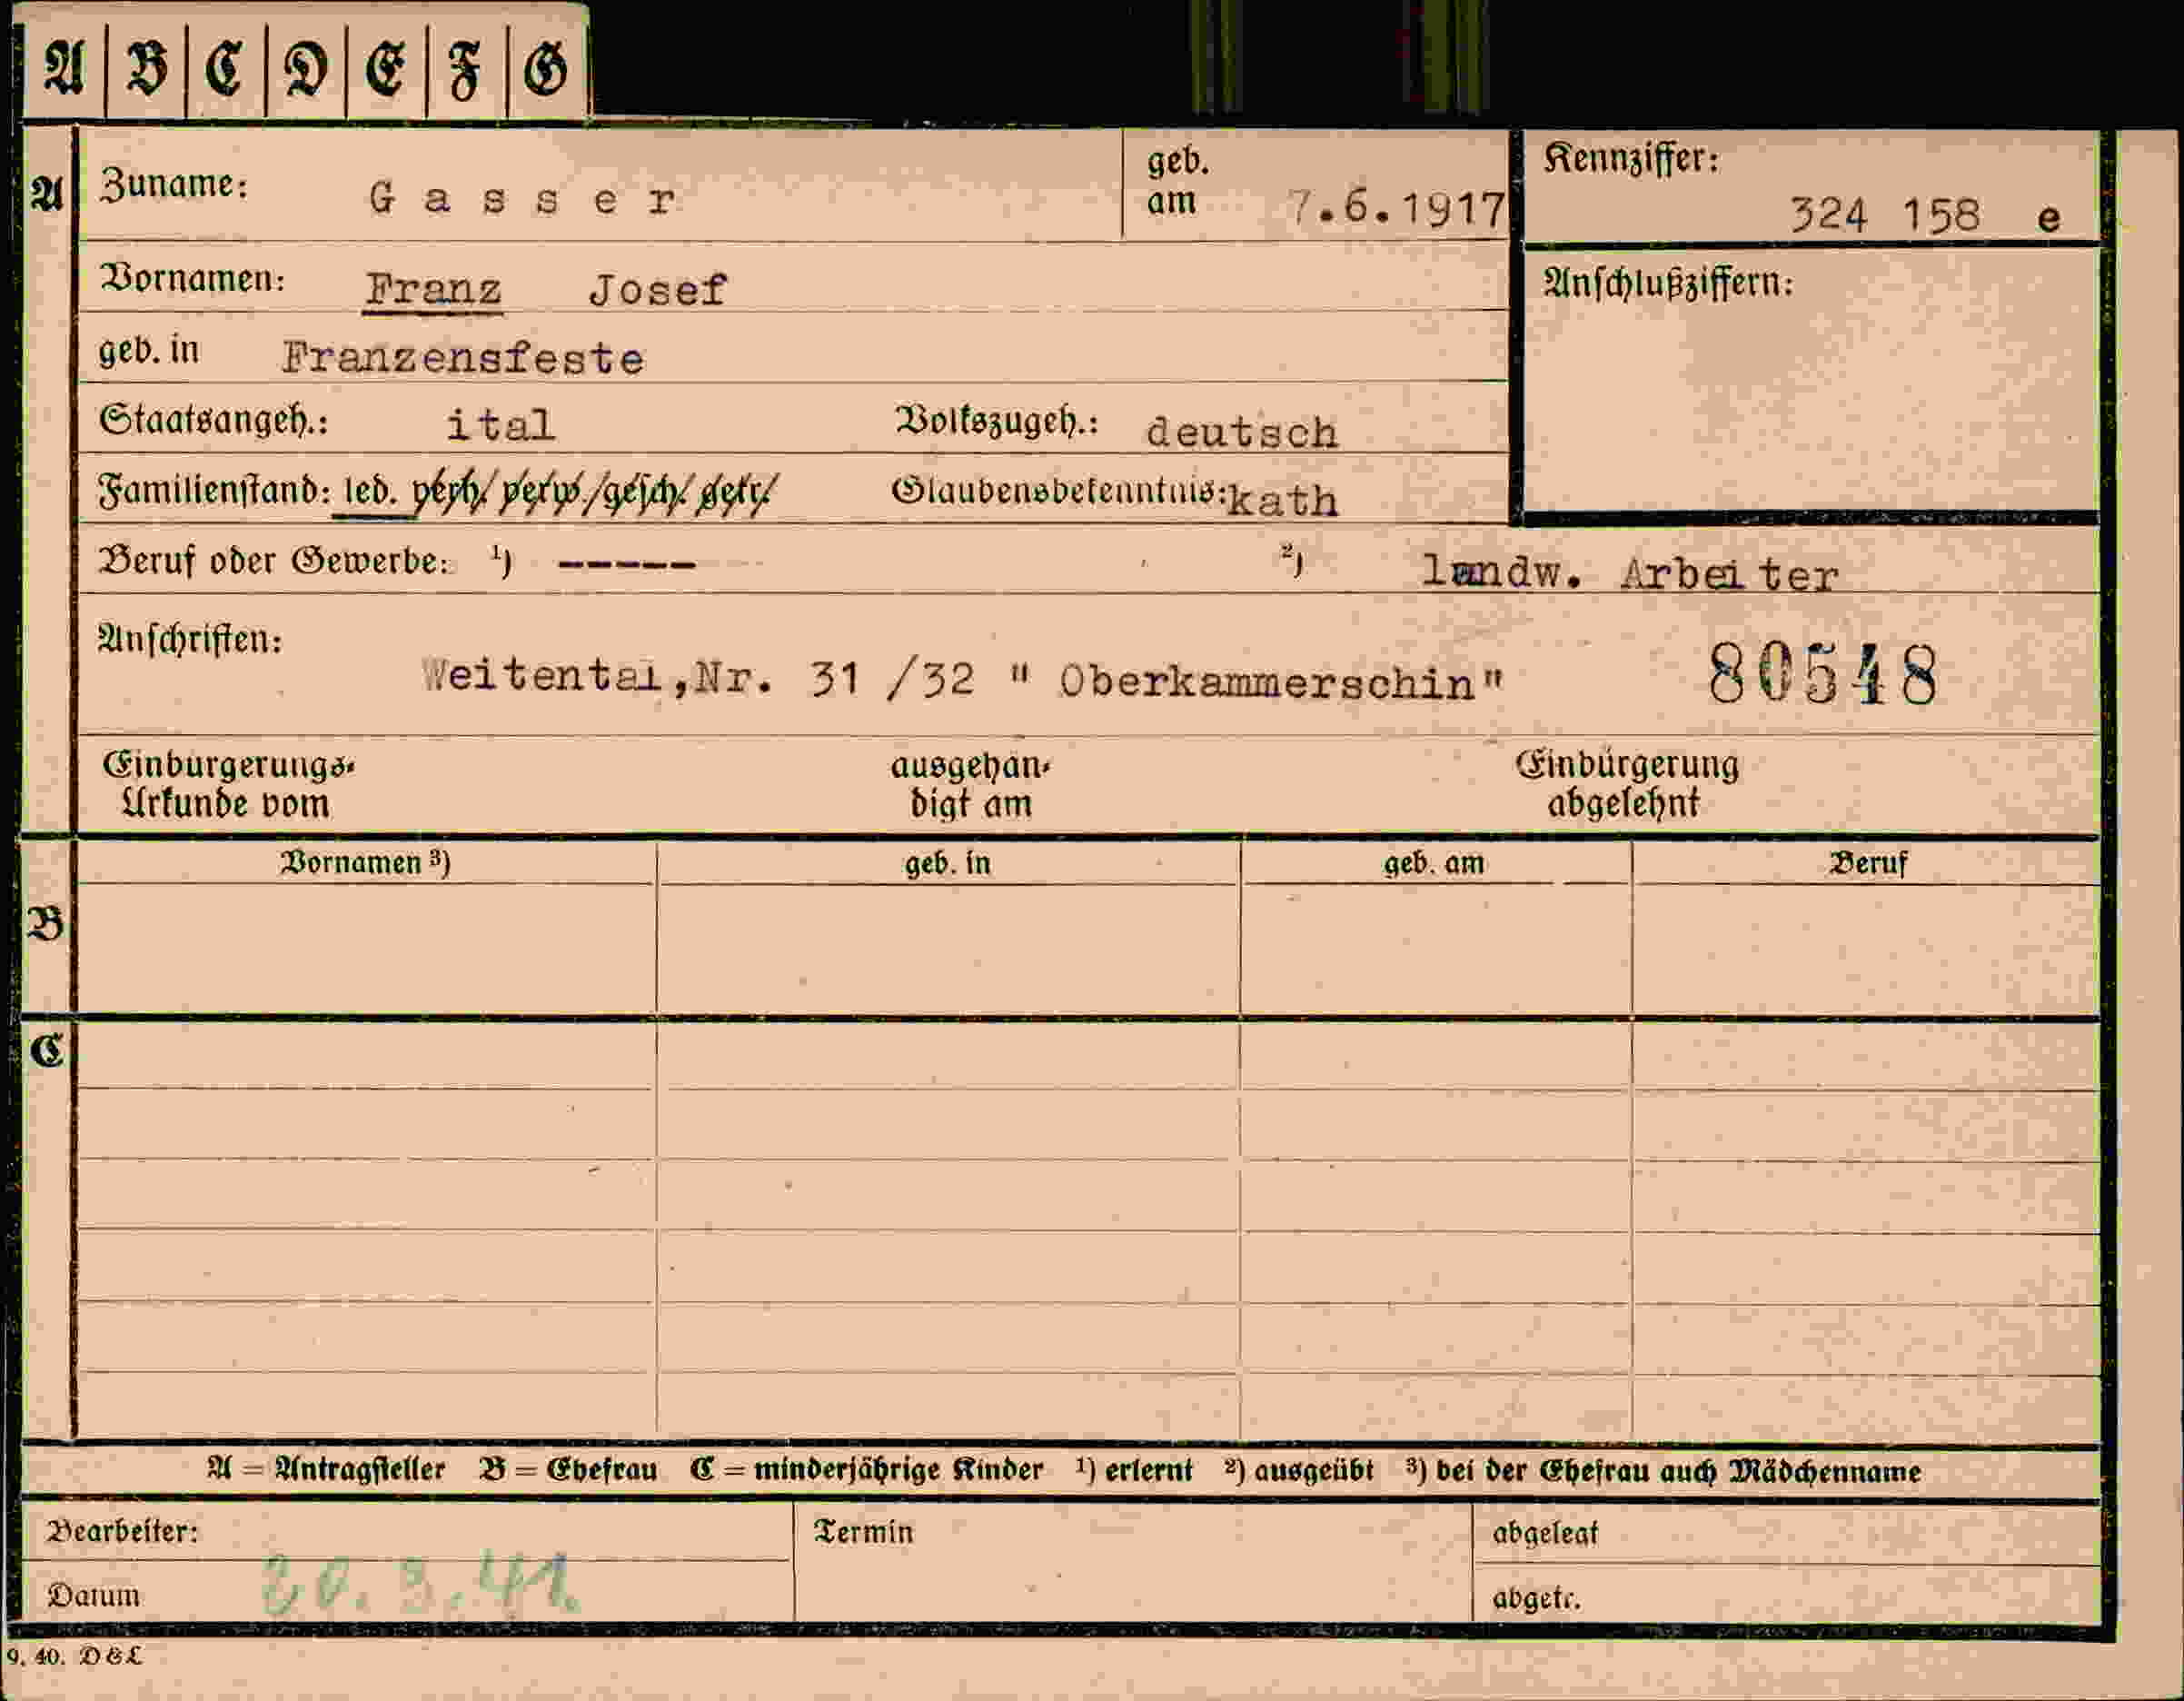 A B C D E F G
A Zuname: Gasser geb. am 7.6.1917 Kennziffer: 324 158 e
Vornamen: Franz Josef Anschlußziffern:
geb. in Franzensfeste
Staatsangeh.: ital Volkszugeh.: deutsch
Familienstand: led. verh./verw./gesch./getr. Glaubensbekenntnis: kath
Beruf oder Gewerbe: ¹) ----- ²) landw. Arbeiter
Anschriften:
Weitental,Nr. 31 /32 " Oberkammerschin" 80548
Einbürgerungs-
Urkunde vom
ausgehän-
digt am
Einbürgerung
abgelehnt
B Vornamen ³) geb. in geb. am Beruf
C
A = Antragsteller B = Ehefrau C = minderjährige Kinder ¹) erlernt ²) ausgeübt ³) bei der Ehefrau auch Mädchenname
Bearbeiter: Termin abgelegt
Datum 20.3.41. abgetr.
9. 40. D&L